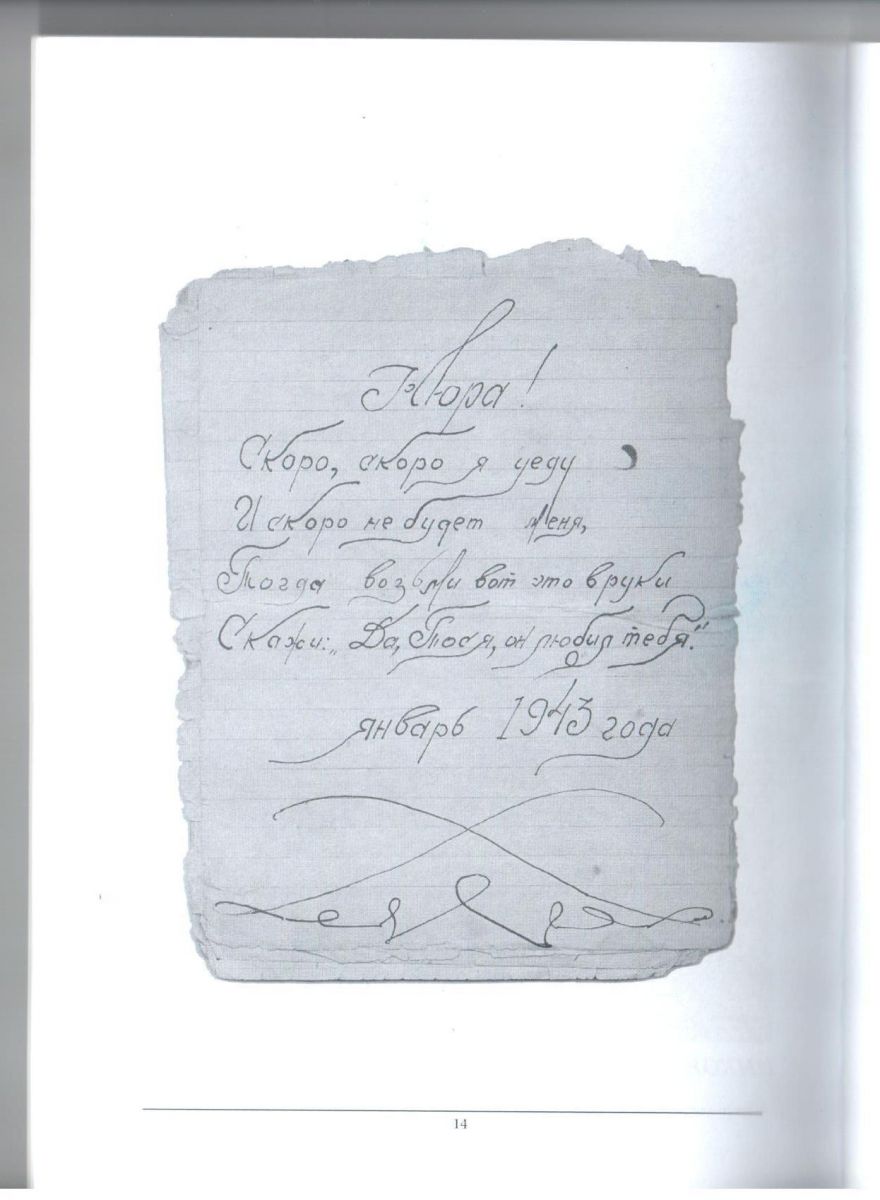 Нюра!
Скоро, скоро я уеду
И скоро не будет меня,
Тогда возьми вот это в руки
Скажи: „Да, Тося, он любил тебя."
январь 1943 года
14